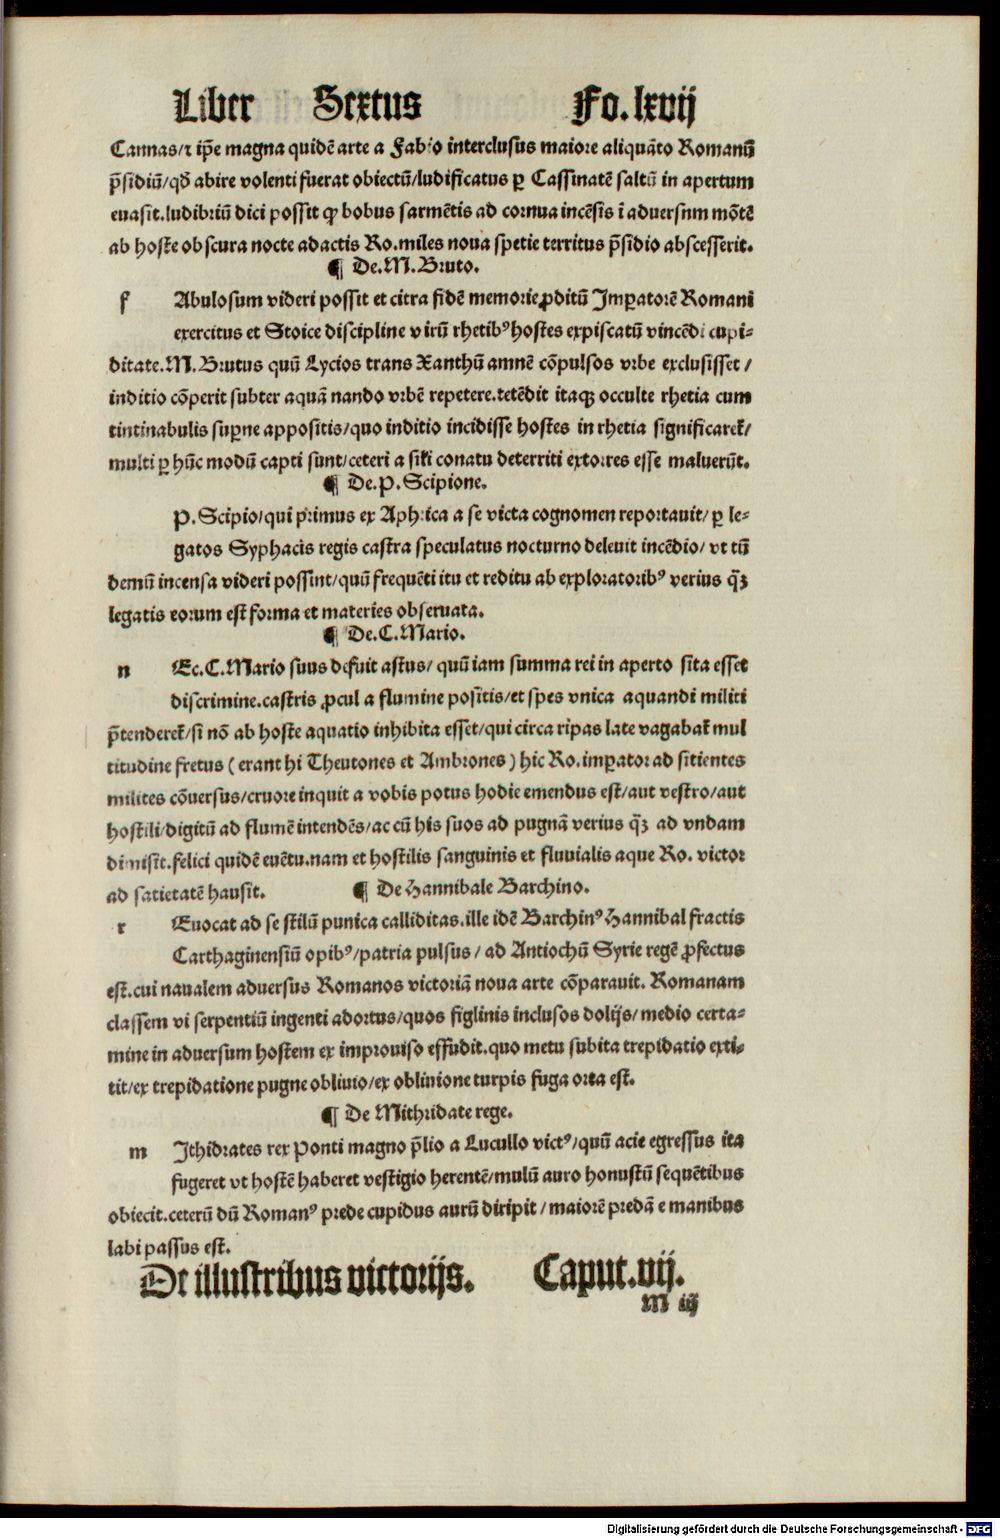 Liber Sextus Fo.lxvij
Cannas/⁊ ip̄e magna quidē arte a Fabio interclusus maiore aliquāto Romanū
p̄sidiū/qđ abire volenti fuerat obiectū/ludificatus ꝑ Cassinatē saltū in apertum
euasit.ludibriū dici possit ꝙ bobus sarmētis ad cornua incēsis ī aduersnm mōtē
ab hoste obscura nocte adactis Ro.miles noua spetie territus p̄sidio abscesserit.
¶ De.M.Bruto.
f Abulosum videri possit et citra fidē memorie ꝓditū Imꝑatorē Romani
exercitus et Stoice discipline virū rhetibꝰ hostes expiscatū vincēdi cupi⸗
ditate.M.Brutus quū Lycios trans Xanthū amnē cōpulsos vrbe exclusisset /
inditio cōperit subter aquā nando vrbē repetere.tetēdit itaqꝫ occulte rhetia cum
tintinabulis suꝑne appositis/quo inditio incidisse hostes in rhetia significaret̄/
multi ꝑ hūc modū capti sunt/ceteri a sil̄i conatu deterriti extorres esse maluerūt.
¶ De.P.Scipione.
P.Scipio/qui primus ex Aphrica a se victa cognomen reportauit/ ꝑ le⸗
gatos Syphacis regis castra speculatus nocturno deleuit incēdio/ vt tū
demū incensa videri possint/quū frequēti itu et reditu ab exploratoribꝰ verius q̄ꝫ
legatis eorum est forma et materies obseruata.
¶ De.C.Mario.
n Ec.C.Mario suus defuit astus/ quū iam summa rei in aperto sita esset
discrimine.castris ꝓcul a flumine positis/et spes vnica aquandi militi
p̄tenderet̄/si nō ab hoste aquatio inhibita esset/qui circa ripas late vagabat̄ mul
titudine fretus ( erant hi Theutones et Ambrones ) hic Ro.imꝑator ad sitientes
milites cōuersus/cruore inquit a vobis potus hodie emendus est/aut vestro/aut
hostili/digitū ad flumē intendēs/ac cū his suos ad pugnā verius q̄ꝫ ad vndam
dimisit.felici quidē euētu.nam et hostilis sanguinis et fluuialis aque Ro. victor
ad satietatē hausit. ¶ De Hannibale Barchino.
r Euocat ad se stilū punica calliditas.ille idē Barchinꝰ Hannibal fractis
Carthaginensiū opibꝰ/patria pulsus / ad Antiochū Syrie regē ꝓfectus
est.cui naualem aduersus Romanos victoriā noua arte cōparauit. Romanam
classem vi serpentiū ingenti adortus/quos figlinis inclusos dolijs/ medio certa⸗
mine in aduersum hostem ex improuiso effudit.quo metu subita trepidatio exti⸗
tit/ex trepidatione pugne obliuio/ex obliuione turpis fuga orta est.
¶ De Mithridate rege.
m Ithidrates rex Ponti magno p̄lio a Lucullo victꝰ/quū acie egressus ita
fugeret vt hostē haberet vestigio herentē/mulū auro honustū sequētibus
obiecit.ceterū dū Romanꝰ prede cupidus aurū diripit / maiorē predā e manibus
labi passus est.
De illustribus victorijs. Caput.vij.
M iij
Digitalisierung gefördert durch die Deutsche Forschungsgemeinschaft - DFG